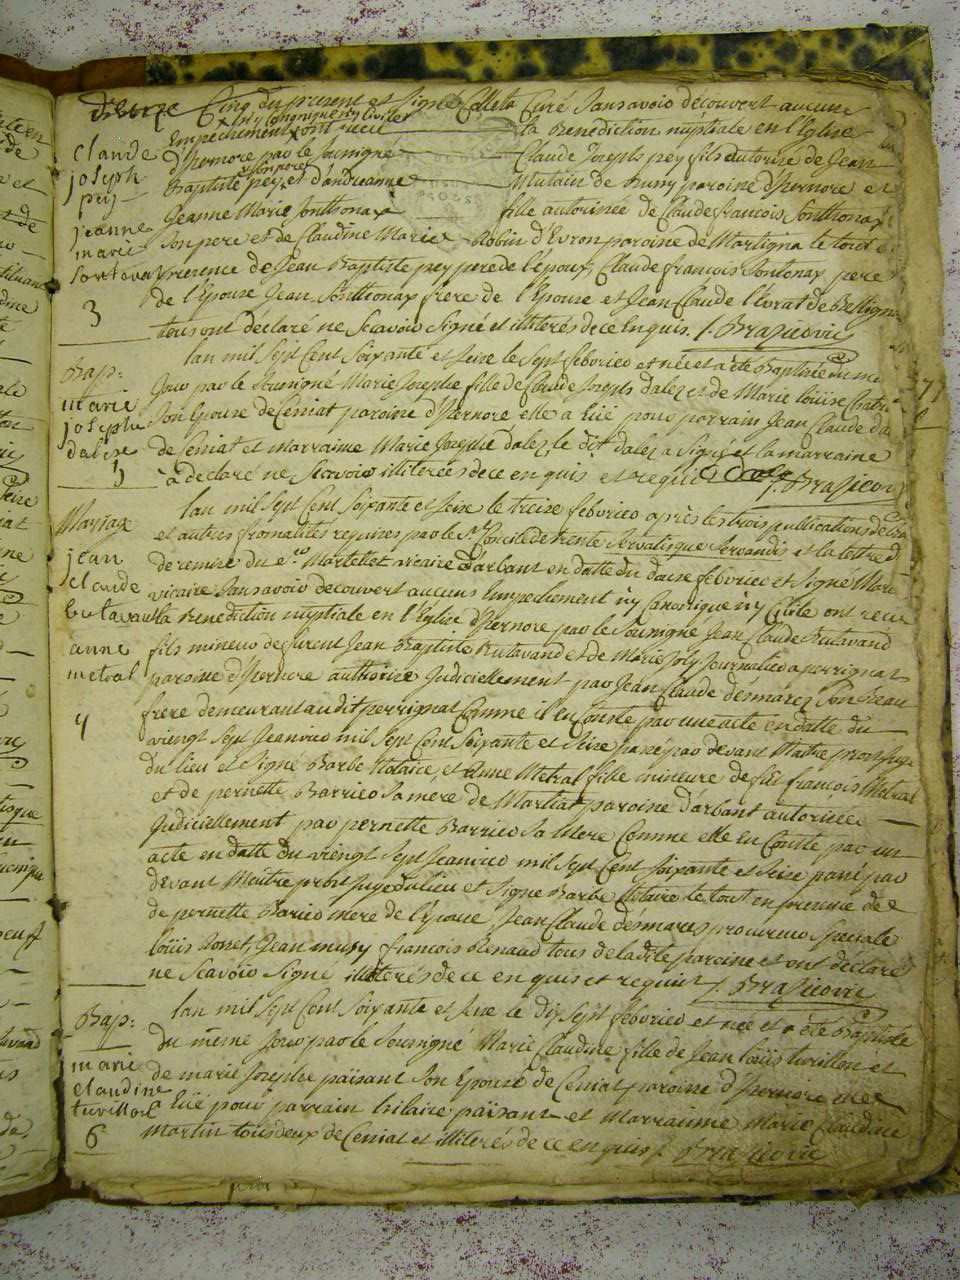 Cinq du present et Signé Colleta Curé Sans avoir decouvert aucun
Empechement ny Canonique ny Civile ont recu la Benediction nuptiale en l'Eglise
claude
d'hernore par le Sousigné Claude Joseph pey fils autorisé de Jean
joseph
Baptiste pey son pere et d'andreanne Mutain de Bussy paroisse d'hernore et
pey
Jeanne Marie Sonthonax fille autorisée de Claude francois Sonthonax
jeanne
marie
Son pere et de Claudine Marie Robin d'Evron paroisse de Martigna le tout en
presence de Jean Baptiste pey pere de l'epoux, Claude francois Sontonax pere
3
de l'Epouse Jean Sonthonax frere de l'Epouse et Jean Claude l'évrat de Belligna
tous ont déclaré ne Scavoir Signé et illiterés de ce Enquis. /. Brasicovic
Bap:
lan mil Sept Cent Soixante et Seize le Sept febvrier est née et a été Baptisée du me
marie
Jour par le Sousigné Marie Josephe fille de Claude Joseph dalez et de Marie louise
josephe
Son Epouse de Ceniat paroisse d'hernore elle a Eüe pour parrain Jean Claude
de Seniat et marraine Marie Josephe dalez, le dit dalez a Signé et la marraine
5
à declaré ne Scavoir illiterée de ce en quis et requis Dalez /. Brasicovic
Mariage
lan mil Sept Cent Soixante et Seize le treize febvrier après les trois publications
jean
et autres fromalités requises par le St Concile de trente Servatis que Servandis et la lettre d
claude
de remise du Sr Martellet vicaire d'arbant en datte du douze febvrier et Signé
vicaire Sans avoir decouvert aucuns Empechement ny Canonique ny Civile ont recu
butavand
la Benediction nuptiale en l'Eglise d'hernore par le Sousigné Jean Claude Butavand
anne
fils mineur de furent Jean Baptiste Butavand et de Marie Joly Journalier a perrignat
metral
paroisse d'hernore authorisé Judiciellement par Jean Claude désmarez Son Beau
4
frere demeurant au dit perrignat Comme il en Conste par une acte en datte du
vingt Sept Jeanvier mil Sept Cent Soixante et Seize passé par devant Maitre prost Juge
du lieu et Signé Barbe Notaire, et Anne Metral fille mineure de feu francois Metral
et de pernette Barrier Sa mere de Martiat paroisse d'arbant autorisée
Judiciellement par pernette Barrier Sa Mere Comme elle en Conste par un
acte en datte du vingt Sept Jeanvier mil Sept Cent Soixante et Seize passé par
devant Maitre prost Juge du lieu et Signé Barbe Notaire le tout en presence de
de pernette Barier mere de l'épouse Jean Claude désmares procureur Speciale
loüis Jonet, Jean mury francois Renaud tous de ladite paroisse et ont declaré
ne Scavoir Signé illiterés de ce en quis et requis /. Brasicovic
Bap:
lan mil Sept Cent Soixante et Seize le dix Sept febvrier est née et a été Baptisée
marie
du même Jour par le Sousigné Marie Claudine fille de Jean loüis turillon et
claudine
de marie Josephe païsant Son Epouse de Ceniat paroisse d'hernore elle
a Eüe pour parrain hilaire païsant et Marrainne Marie Claudine
6
Martin tous deux de Ceniat et illiterés de ce en quis /. Brasicovic